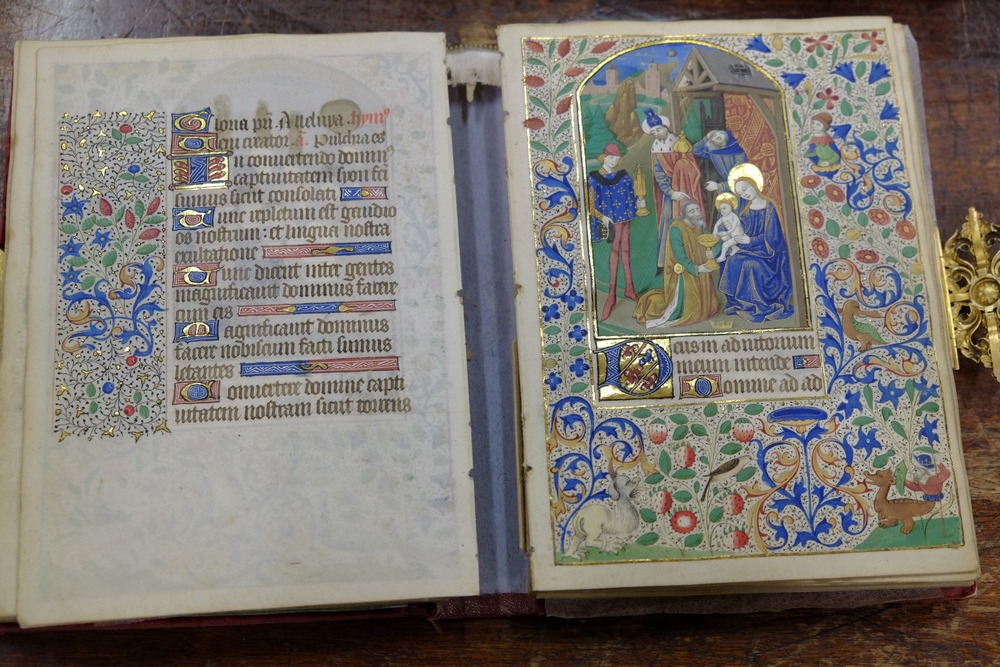 Gloria pri Alleluya. hymꝰ
Memento salutis auctor Pulchra es
In convertendo dominꝰ
captivitatem syon fcī
sumus sicut consolati
Tunc repletum est gaudio
os nostrum : et lingua nostra
exultatione
Tunc dicent inter gentes
magnificavit dominus facere
cum eis
Magnificavit dominus
facere nobiscum facti sumus
letantes
Convertere domine capti
vitatem nostram sicut torrens
Deus in adiutorium
meum intende
Domine ad ad